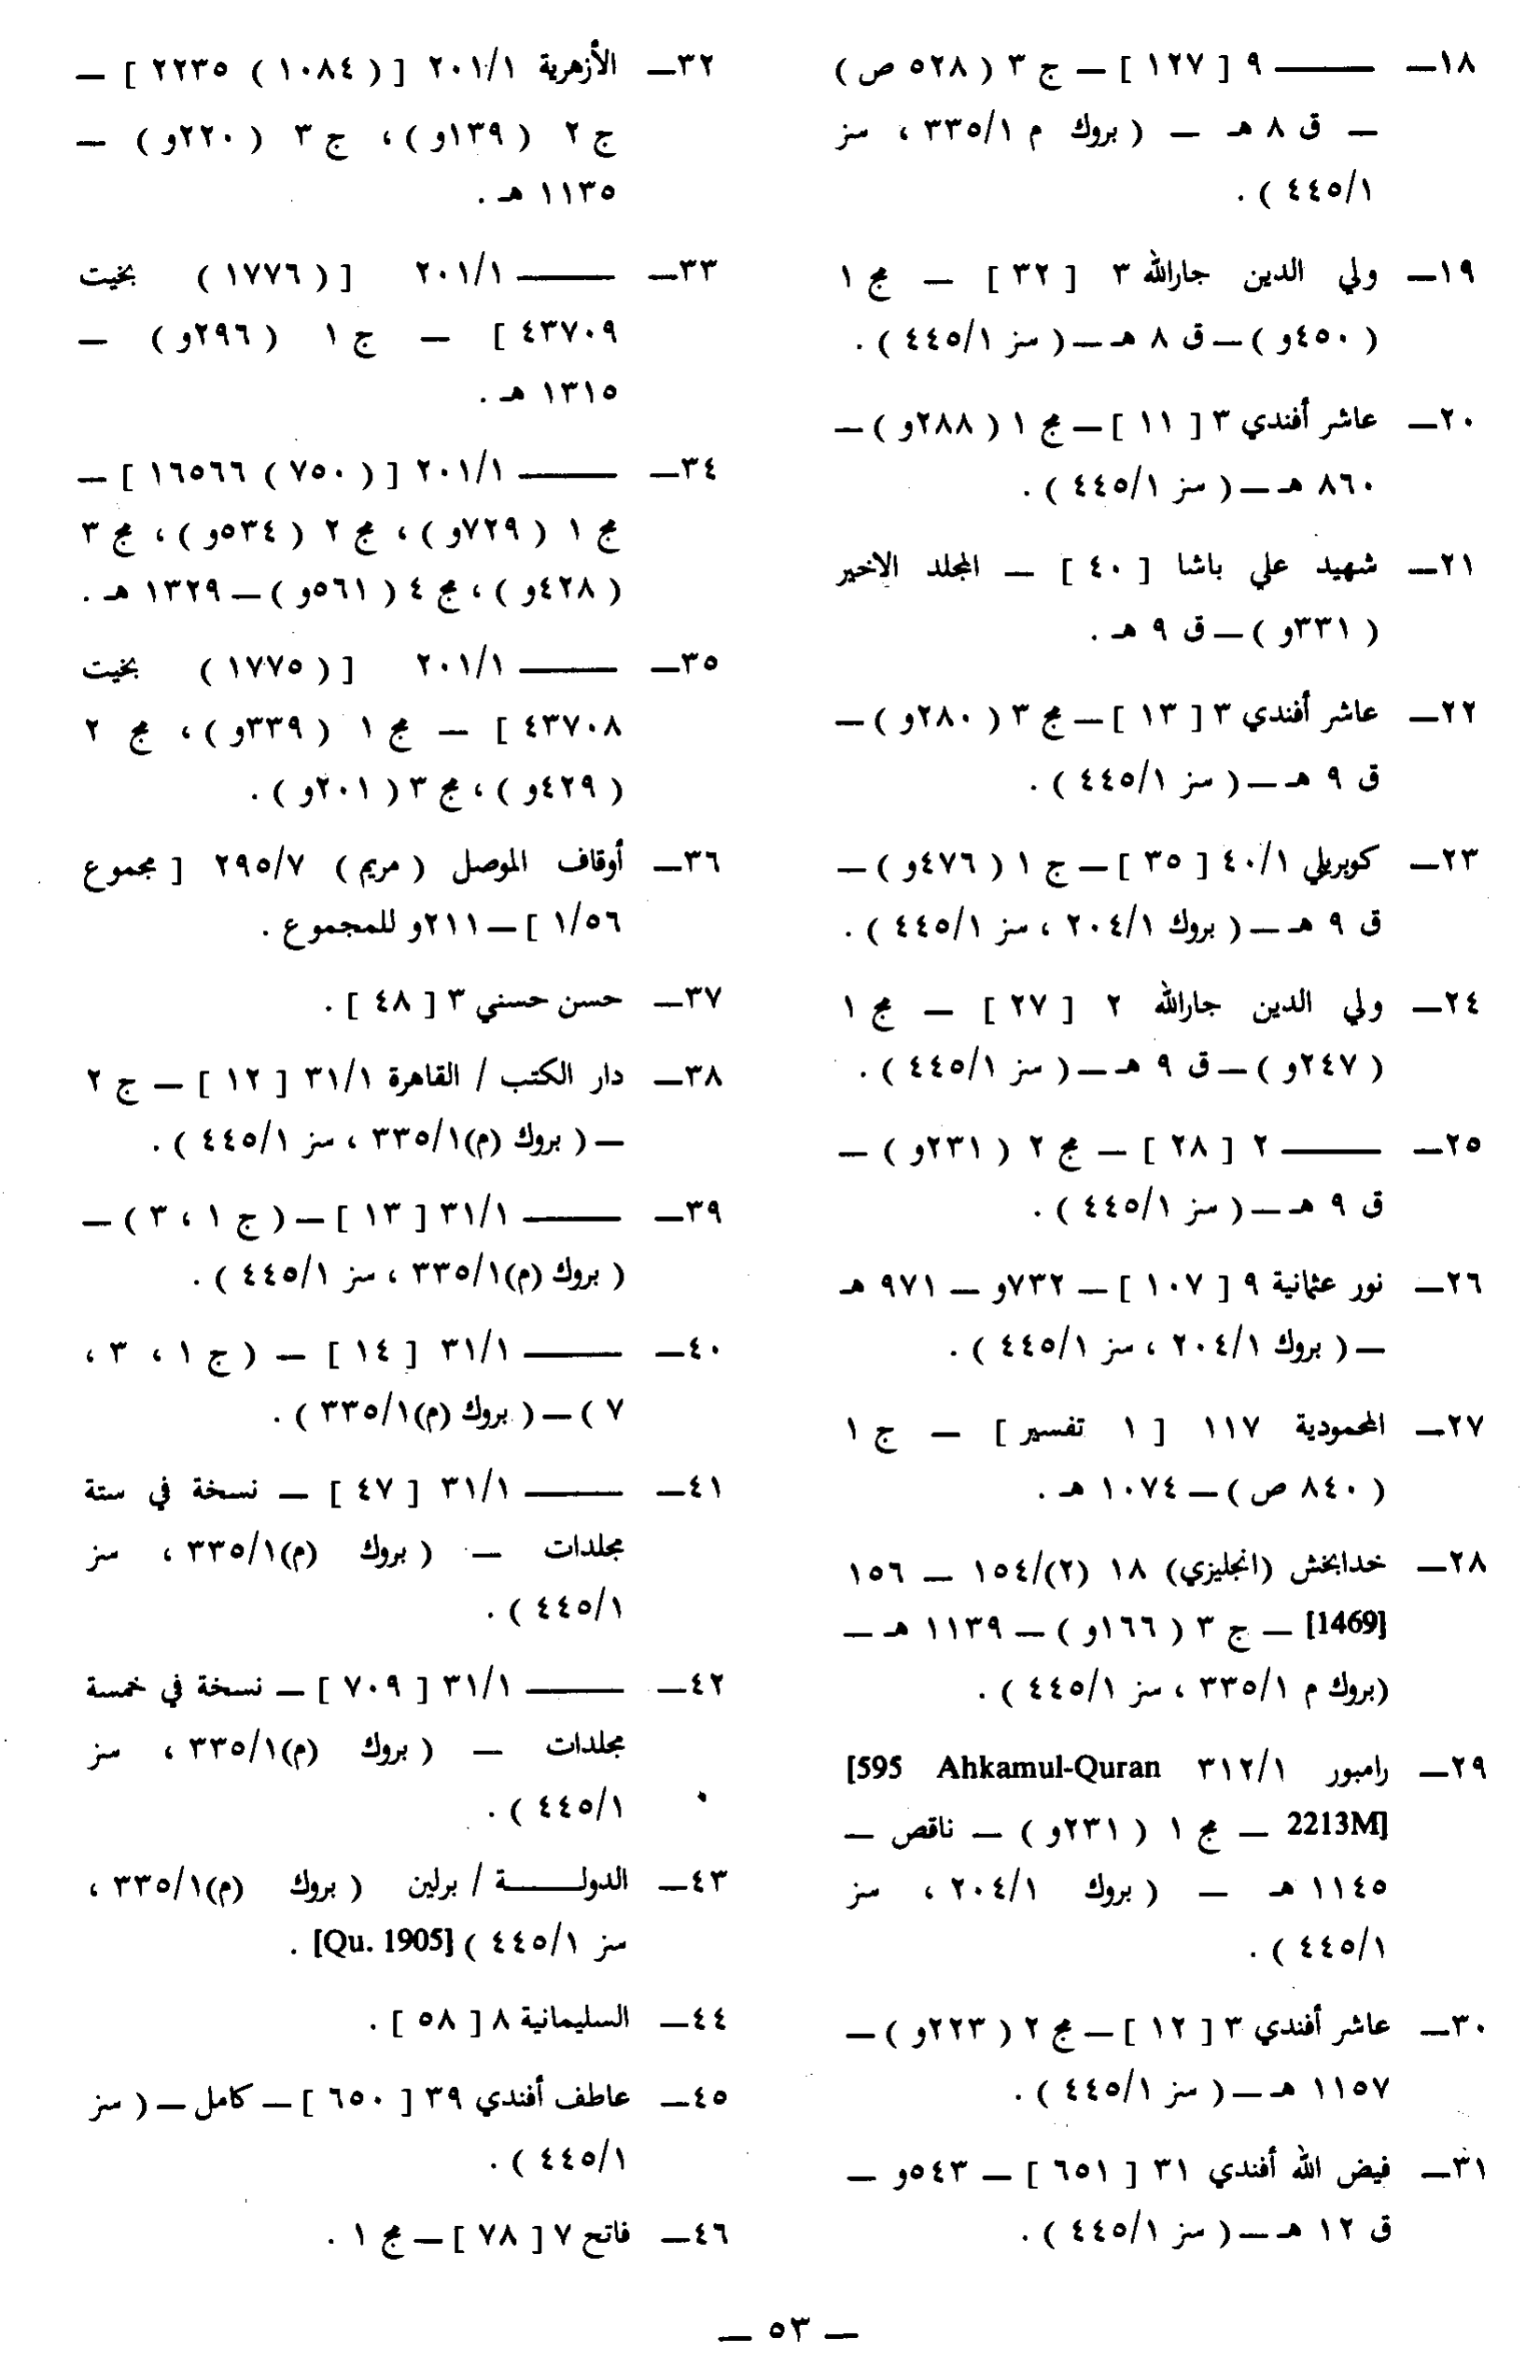 ١٨ــ ـــــــ ٩ [ ١٢٧ ] ــ ج ٣ ( ٥٢٨ ص )
ــ ق ٨ هـ ــ ( بروك م ٣٣٥/١ ، سز
٤٤٥/١ ) .
١٩ــ ولي الدين جارالله ٣ [ ٣٢ ] ــ مج ١
( ٤٥٠و ) ــ ق ٨ هـ ــ ( سز ٤٤٥/١ ) .
٢٠ــ عاشر أفندي ٣ [ ١١ ] ــ مج ١ ( ٢٨٨و ) ــ
٨٦٠ هـ ــ ( سز ٤٤٥/١ ) .
٢١ــ شهيد علي باشا [ ٤٠ ] ــ المجلد الاخير
( ٣٣١و ) ــ ق ٩ هـ .
٢٢ــ عاشر أفندي ٣ [ ١٣ ] ــ مج ٣ ( ٢٨٠و ) ــ
ق ٩ هـ ــ ( سز ٤٤٥/١ ) .
٢٣ــ كوبريلي ٤٠/١ [ ٣٥ ] ــ ج ١ ( ٤٧٦و ) ــ
ق ٩ هـ ــ ( بروك ٢٠٤/١ ، سز ٤٤٥/١ ) .
٢٤ــ ولي الدين جارالله ٢ [ ٢٧ ] ــ مج ١
( ٢٤٧و ) ــ ق ٩ هـ ــ ( سز ٤٤٥/١ ) .
٢٥ــ ـــــــ ٢ [ ٢٨ ] ــ مج ٢ ( ٢٣١و ) ــ
ق ٩ هـ ــ ( سز ٤٤٥/١ ) .
٢٦ــ نور عثمانية ٩ [ ١٠٧ ] ــ ٧٣٢و ــ ٩٧١ هـ
ــ ( بروك ٢٠٤/١ ، سز ٤٤٥/١ ) .
٢٧ــ المحمودية ١١٧ [ ١ تفسير ] ــ ج ١
( ٨٤٠ ص ) ــ ١٠٧٤ هـ .
٢٨ــ خدابخش (انجليزي) ١٨ (٢)/١٥٤ ــ ١٥٦
[1469] ــ ج ٣ ( ١٦٦و ) ــ ١١٣٩ هـ ــ
(بروك م ٣٣٥/١ ، سز ٤٤٥/١ ) .
٢٩ــ رامبور ٣١٢/١ [595 Ahkamul-Quran
2213M] ــ مج ١ ( ٢٣١و ) ــ ناقص ــ
١١٤٥ هـ ــ ( بروك ٢٠٤/١ ، سز
٤٤٥/١ ) .
٣٠ــ عاشر أفندي ٣ [ ١٢ ] ــ مج ٢ ( ٢٢٣و ) ــ
١١٥٧ هـ ــ ( سز ٤٤٥/١ ) .
٣١ــ فيض الله أفندي ٣١ [ ٦٥١ ] ــ ٥٤٣و ــ
ق ١٢ هـ ــ ( سز ٤٤٥/١ ) .
٣٢ــ الأزهرية ٢٠١/١ [ ( ١٠٨٤ ) ٢٢٣٥ ] ــ
ج ٢ ( ١٣٩و ) ، ج ٣ ( ٢٢٠و ) ــ
١١٣٥ هـ .
٣٣ــ ـــــــ ٢٠١/١ [ ( ١٧٧٦ ) بخيت
٤٣٧٠٩ ] ــ ج ١ ( ٢٩٦و ) ــ
١٣١٥ هـ .
٣٤ــ ـــــــ ٢٠١/١ [ ( ٧٥٠ ) ١٦٥٦٦ ] ــ
مج ١ ( ٧٢٩و ) ، مج ٢ ( ٥٣٤و ) ، مج ٣
( ٤٢٨و ) ، مج ٤ ( ٥٦١و ) ــ ١٣٢٩ هـ .
٣٥ــ ـــــــ ٢٠١/١ [ ( ١٧٧٥ ) بخيت
٤٣٧٠٨ ] ــ مج ١ ( ٣٣٩و ) ، مج ٢
( ٤٢٩و ) ، مج ٣ ( ٢٠١و ) .
٣٦ــ أوقاف الموصل ( مريم ) ٢٩٥/٧ [ مجموع
١/٥٦ ] ــ ٢١١و للمجموع .
٣٧ــ حسن حسني ٣ [ ٤٨ ] .
٣٨ــ دار الكتب / القاهرة ٣١/١ [ ١٢ ] ــ ج ٢
ــ ( بروك (م)٣٣٥/١ ، سز ٤٤٥/١ ) .
٣٩ــ ـــــــ ٣١/١ [ ١٣ ] ــ ( ج ١ ، ٣ ) ــ
( بروك (م)٣٣٥/١ ، سز ٤٤٥/١ ) .
٤٠ــ ـــــــ ٣١/١ [ ١٤ ] ــ ( ج ١ ، ٣ ،
٧ ) ــ ( بروك (م)٣٣٥/١ ) .
٤١ــ ـــــــ ٣١/١ [ ٤٧ ] ــ نسخة في ستة
مجلدات ــ ( بروك (م)٣٣٥/١ ، سز
٤٤٥/١ ) .
٤٢ــ ـــــــ ٣١/١ [ ٧٠٩ ] ــ نسخة في خمسة
مجلدات ــ ( بروك (م)٣٣٥/١ ، سز
٤٤٥/١ ) .
٤٣ــ الدولـــــة / برلين ( بروك (م)٣٣٥/١ ،
سز ٤٤٥/١ ) [Qu. 1905] .
٤٤ــ السليمانية ٨ [ ٥٨ ] .
٤٥ــ عاطف أفندي ٣٩ [ ٦٥٠ ] ــ كامل ــ ( سز
٤٤٥/١ ) .
٤٦ــ فاتح ٧ [ ٧٨ ] ــ مج ١ .
ــ ٥٣ ــ